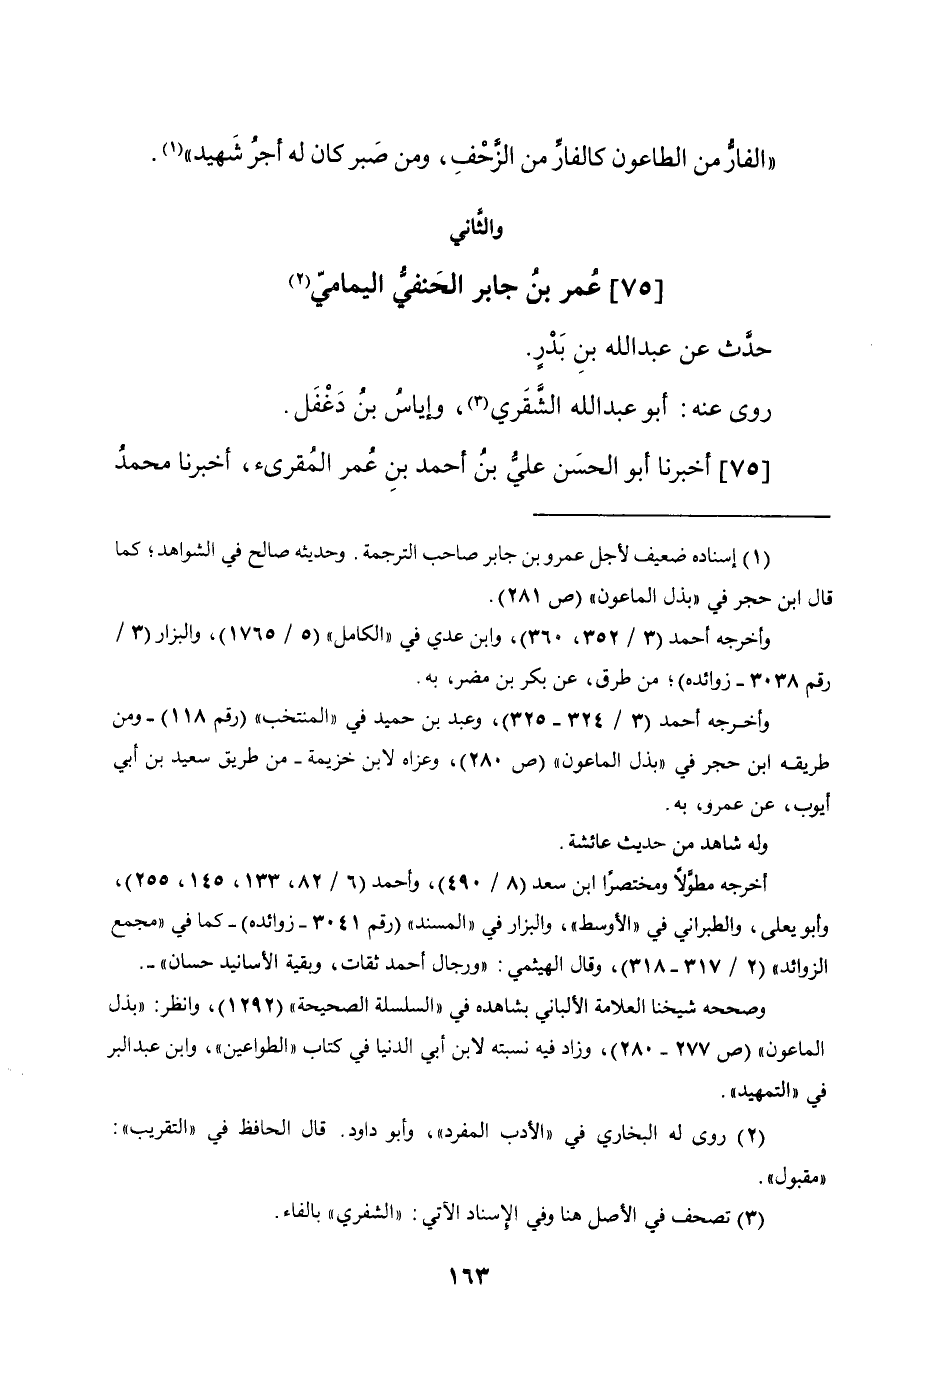 «الفارُّ من الطاعون كالفارِّ من الزَّحْفِ، ومن صَبر كان له أجرُ شَهيد»(١).
والثَّاني
[٧٥] عُمر بنُ جابر الحَنفيُّ اليماميّ(٢)
حدَّث عن عبدالله بنِ بَدْرٍ.
روى عنه: أبو عبدالله الشَّقَري(٣)، وإياسُ بنُ دَغْفَل.
[٧٥] أخبرنا أبو الحسَن عليُّ بنُ أحمد بنِ عُمر المُقرىء، أخبرنا محمدُ
(١) إسناده ضعيف لأجل عمرو بن جابر صاحب الترجمة. وحديثه صالح في الشواهد؛ كما
قال ابن حجر في «بذل الماعون» (ص ٢٨١).
وأخرجه أحمد (٣ / ٣٥٢، ٣٦٠)، وابن عدي في «الكامل» (٥ / ١٧٦٥)، والبزار (٣ /
رقم ٣٠٣٨ ـ زوائده)؛ من طرق، عن بكر بن مضر، به.
وأخرجه أحمد (٣ / ٣٢٤ ـ ٣٢٥)، وعبد بن حميد في «المنتخب» (رقم ١١٨) ـ ومن
طريقه ابن حجر في «بذل الماعون» (ص ٢٨٠)، وعزاه لابن خزيمة ـ من طريق سعيد بن أبي
أيوب، عن عمرو، به.
وله شاهد من حديث عائشة.
أخرجه مطوَّلاً ومختصرًا ابن سعد (٨ / ٤٩٠)، وأحمد (٦ / ٨٢، ١٣٣، ١٤٥، ٢٥٥)،
وأبو يعلى، والطبراني في «الأوسط»، والبزار في «المسند» (رقم ٣٠٤١ ـ زوائده) ـ كما في «مجمع
الزوائد» (٢ / ٣١٧ ـ ٣١٨)، وقال الهيثمي: «ورجال أحمد ثقات، وبقية الأسانيد حسان» ـ.
وصححه شيخنا العلامة الألباني بشاهده في «السلسلة الصحيحة» (١٢٩٢)، وانظر: «بذل
الماعون» (ص ٢٧٧ ـ ٢٨٠)، وزاد فيه نسبته لابن أبي الدنيا في كتاب «الطواعين»، وابن عبدالبر
في «التمهيد».
(٢) روى له البخاري في «الأدب المفرد»، وأبو داود. قال الحافظ في «التقريب»:
«مقبول».
(٣) تصحف في الأصل هنا وفي الإسناد الآتي: «الشفري» بالفاء.
١٦٣